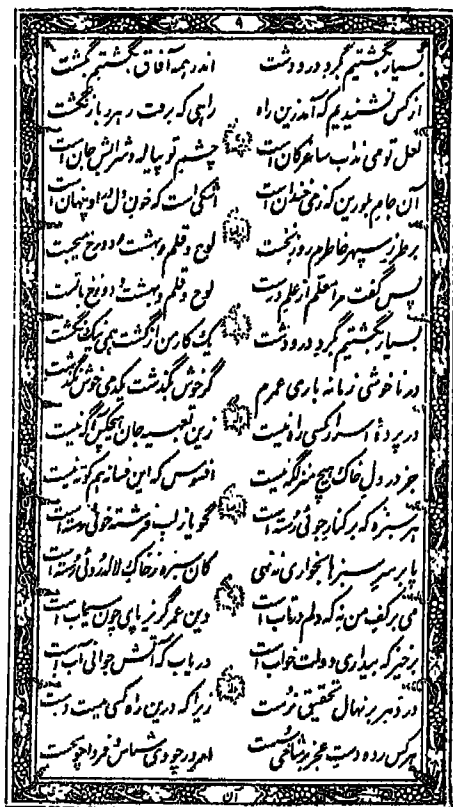 ۹
بسیار بگشتیم گرد در و دشت اندر همه آفاق بگشتیم بگشت
از کس نشنیدیم که آمد زین راه راهی که برفت رهرو باز نگشت
لعل تو می مذاب ساغر کان است چشم تو پیاله و شرابش جان است
آن جام بلورین که ز می خندان است اشکی است که خون دل درو پنهان است
بر طرز سپهر خاطرم روز نخست لوح و قلم و بهشت و دوزخ میجست
پس گفت مرا معلم از علم درست لوح و قلم و بهشت و دوزخ با تست
بسیار بگشتیم گرد در و دشت یک کار من از گشت همی نیک نگشت
در ناخوشی زمانه باری عمرم گر خوش نگذشت یکدمی خوش نگذشت
در پردهٔ اسرار کسی را ره نیست زین تعبیه جان هیچکس آگه نیست
جز در دل خاک هیچ منزلگه نیست افسوس که این فسانه هم کوته نیست
هر سبزه که بر کنار جوئی رسته است گویا ز لب فرشته خوئی رسته است
پا بر سر سبزه تا بخواری ننهی کان سبزه ز خاک لاله روئی رسته است
می بر کف من نه که دلم در تاب است وین عمر گریز پای چون سیماب است
برخیز که بیداری دولت خواب است دریاب که آتش جوانی آب است
در دهر بر نهال تحقیق نرست زیرا که درین راه کسی نیست درست
هر کس زده دست عجز در شاخی سست امروز چو دی شناس و فردا چو نخست